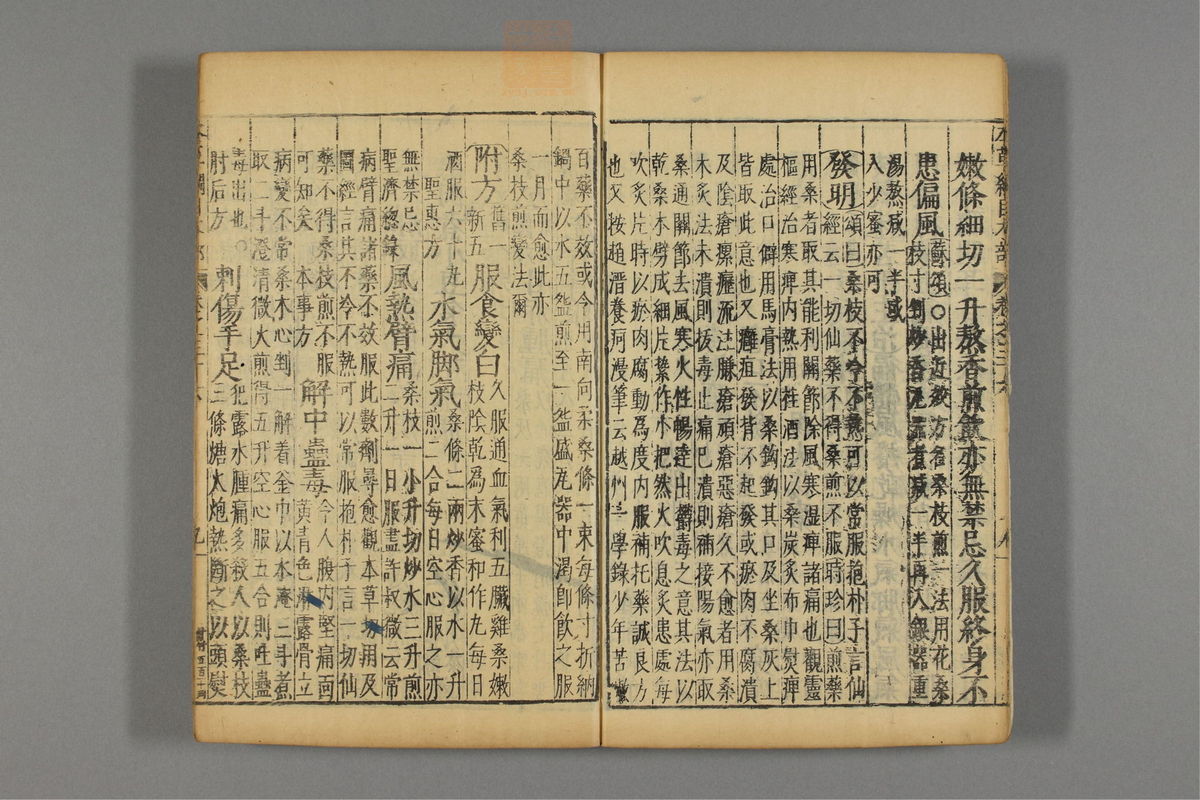 嫩條細切一升熬香煎飲亦無禁忌久服終身不
患偏風蘇頌○出近效方名桑枝煎一法用花桑
枝寸剉炒香瓦器煮減一半再入銀器重
湯熬減一半或
入少蜜亦可
發明頌曰桑枝不冷不熱可以常服抱朴子言仙
經云一切仙藥不得桑煎不服時珍曰煎藥
用桑者取其能利關節除風寒濕痺諸痛也觀靈
樞經治寒痺內熱用桂酒法以桑炭炙布巾熨痺
處治口僻用馬膏法以桑鈎鈎其口及坐桑灰上
皆取此意也又癰疽發背不起發或瘀肉不腐潰
及陰瘡瘰癧流注臁瘡頑瘡惡瘡久不愈者用桑
木炙法未潰則拔毒止痛已潰則補接陽氣亦取
桑通關節去風寒火性暢達出鬱毒之意其法以
乾桑木劈成細片紮作小把然火吹息炙患處每
吹炙片時以瘀肉腐動爲度內服補托藥誠良方
也又按趙溍養疴漫筆云越州 學錄少年苦嗽
百藥不效或令用南向柔桑條一束每條寸折納
鍋中以水五盌煎至一盌盛瓦器中渴卽飲之服
一月而愈此亦
桑枝煎變法爾
附方舊一新五服食變白久服通血氣利五臟雞桑嫩
枝陰乾爲末蜜和作丸每日
酒服六十丸
聖惠方水氣脚氣桑條二兩炒香以水一升
煎二合每日空心服之亦
無禁忌
聖濟總錄風熱臂痛桑枝一小升切炒水三升煎
二升一日服盡許叔微云常
病臂痛諸藥不效服此數劑尋愈觀本草切用及
圖經言其不冷不熱可以常服抱朴子言一切仙
藥不得桑枝煎不服
可知矣 本事方解中蠱毒令人腹內堅痛面
黃青色淋露骨立
病變不常桑木心剉一斛着釜中以水淹三寸煮
取二斗澄清微火煎得五升空心服五合則吐蠱
毒出也○
肘后方刺傷手足犯露水腫痛多殺人以桑枝
三條煻火炮熱斷之以頭熨